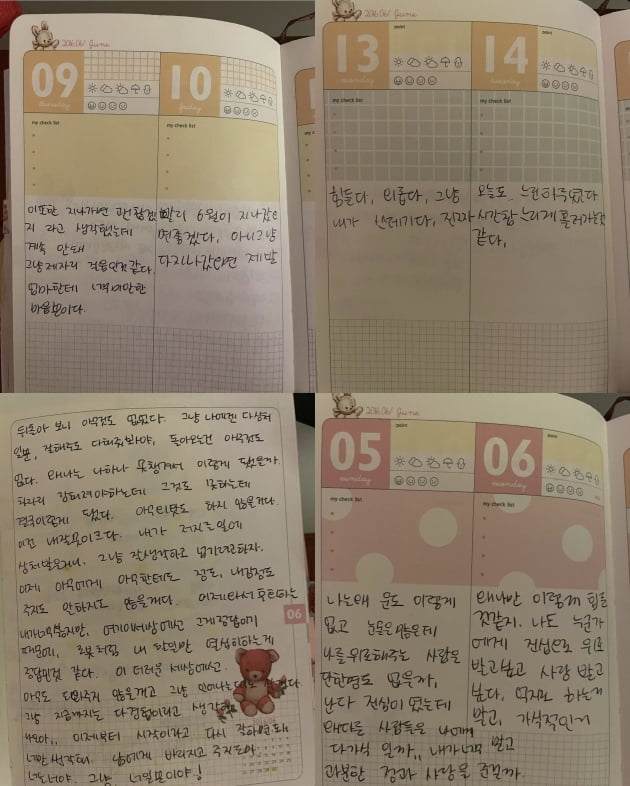 2016.06/ June
09
thursday
my check list
이또한 지나가면 괜찮겠
지 라고 생각했는데
계속 안돼
그냥 제자리 걸음인것같다.
엄마한테 미안한
마음뿐이다.
10
friday
my check list
빨리 6월이 지나갔으
면좋겠다, 아니그냥
다지나갔으면 제발
2016.06/ June
13
monday
point
my check list
힘들다, 외롭다, 그냥
내가 쓰레기다, 진짜
14
tuesday
point
my check list
오늘도 느린하루였다
시간참 느리게 흘러가는것
같다,
뒤돌아 보니 아무것도 없었다. 그냥 나에겐 다상처
일뿐, 잘해줘도 다해줘봐야, 돌아오는건 아무것도
없다. 왜나는 나하나 못챙겨서 이렇게 됐을까.
차라리 강해져야하는데 그것도 못하는데
결국이렇게 됐다. 아무것도 하지 않을거다.
이건 내잘못이크다. 내가 저지른일에
상처받은거니, 그냥 잘생각하고 넘기려고하자.
이제 아무에게 아무한테도 정도, 내감정도
주지도 안하지도 않을꺼다. 이제와서 후회하는
내가
때문에, 내 할일만 열심히하는게
정답인것 같다. 이 더러운 세상에선.
아무도 않을꺼고 그냥
그냥 지금까지는 다경험이라고 생각
이제부터 시작이라고 다시 잘하면돼
너만생각해. 남에게 바라지고 주지도마.
너는너야. 그냥, 너일뿐이야.!
06
2016.06/ June
05
sunday
point
my check list
나는왜 운도 이렇게
없고 눈물은많은데
나를위로해주는 사람은
단한명도 없을까,
난다 진심이 었는데
왜다른 사람들은 나에게
다가식 일까,, 내가너무 많고
과분한 정과 사랑을 준걸까.
06
monday
point
my check list
왜나만 이렇게 힘든
것같지. 나도 누군가
에게 진심으로 위로
받고싶고 사랑 받고
싶다. 억지로 하는게
말고, 가식적인게